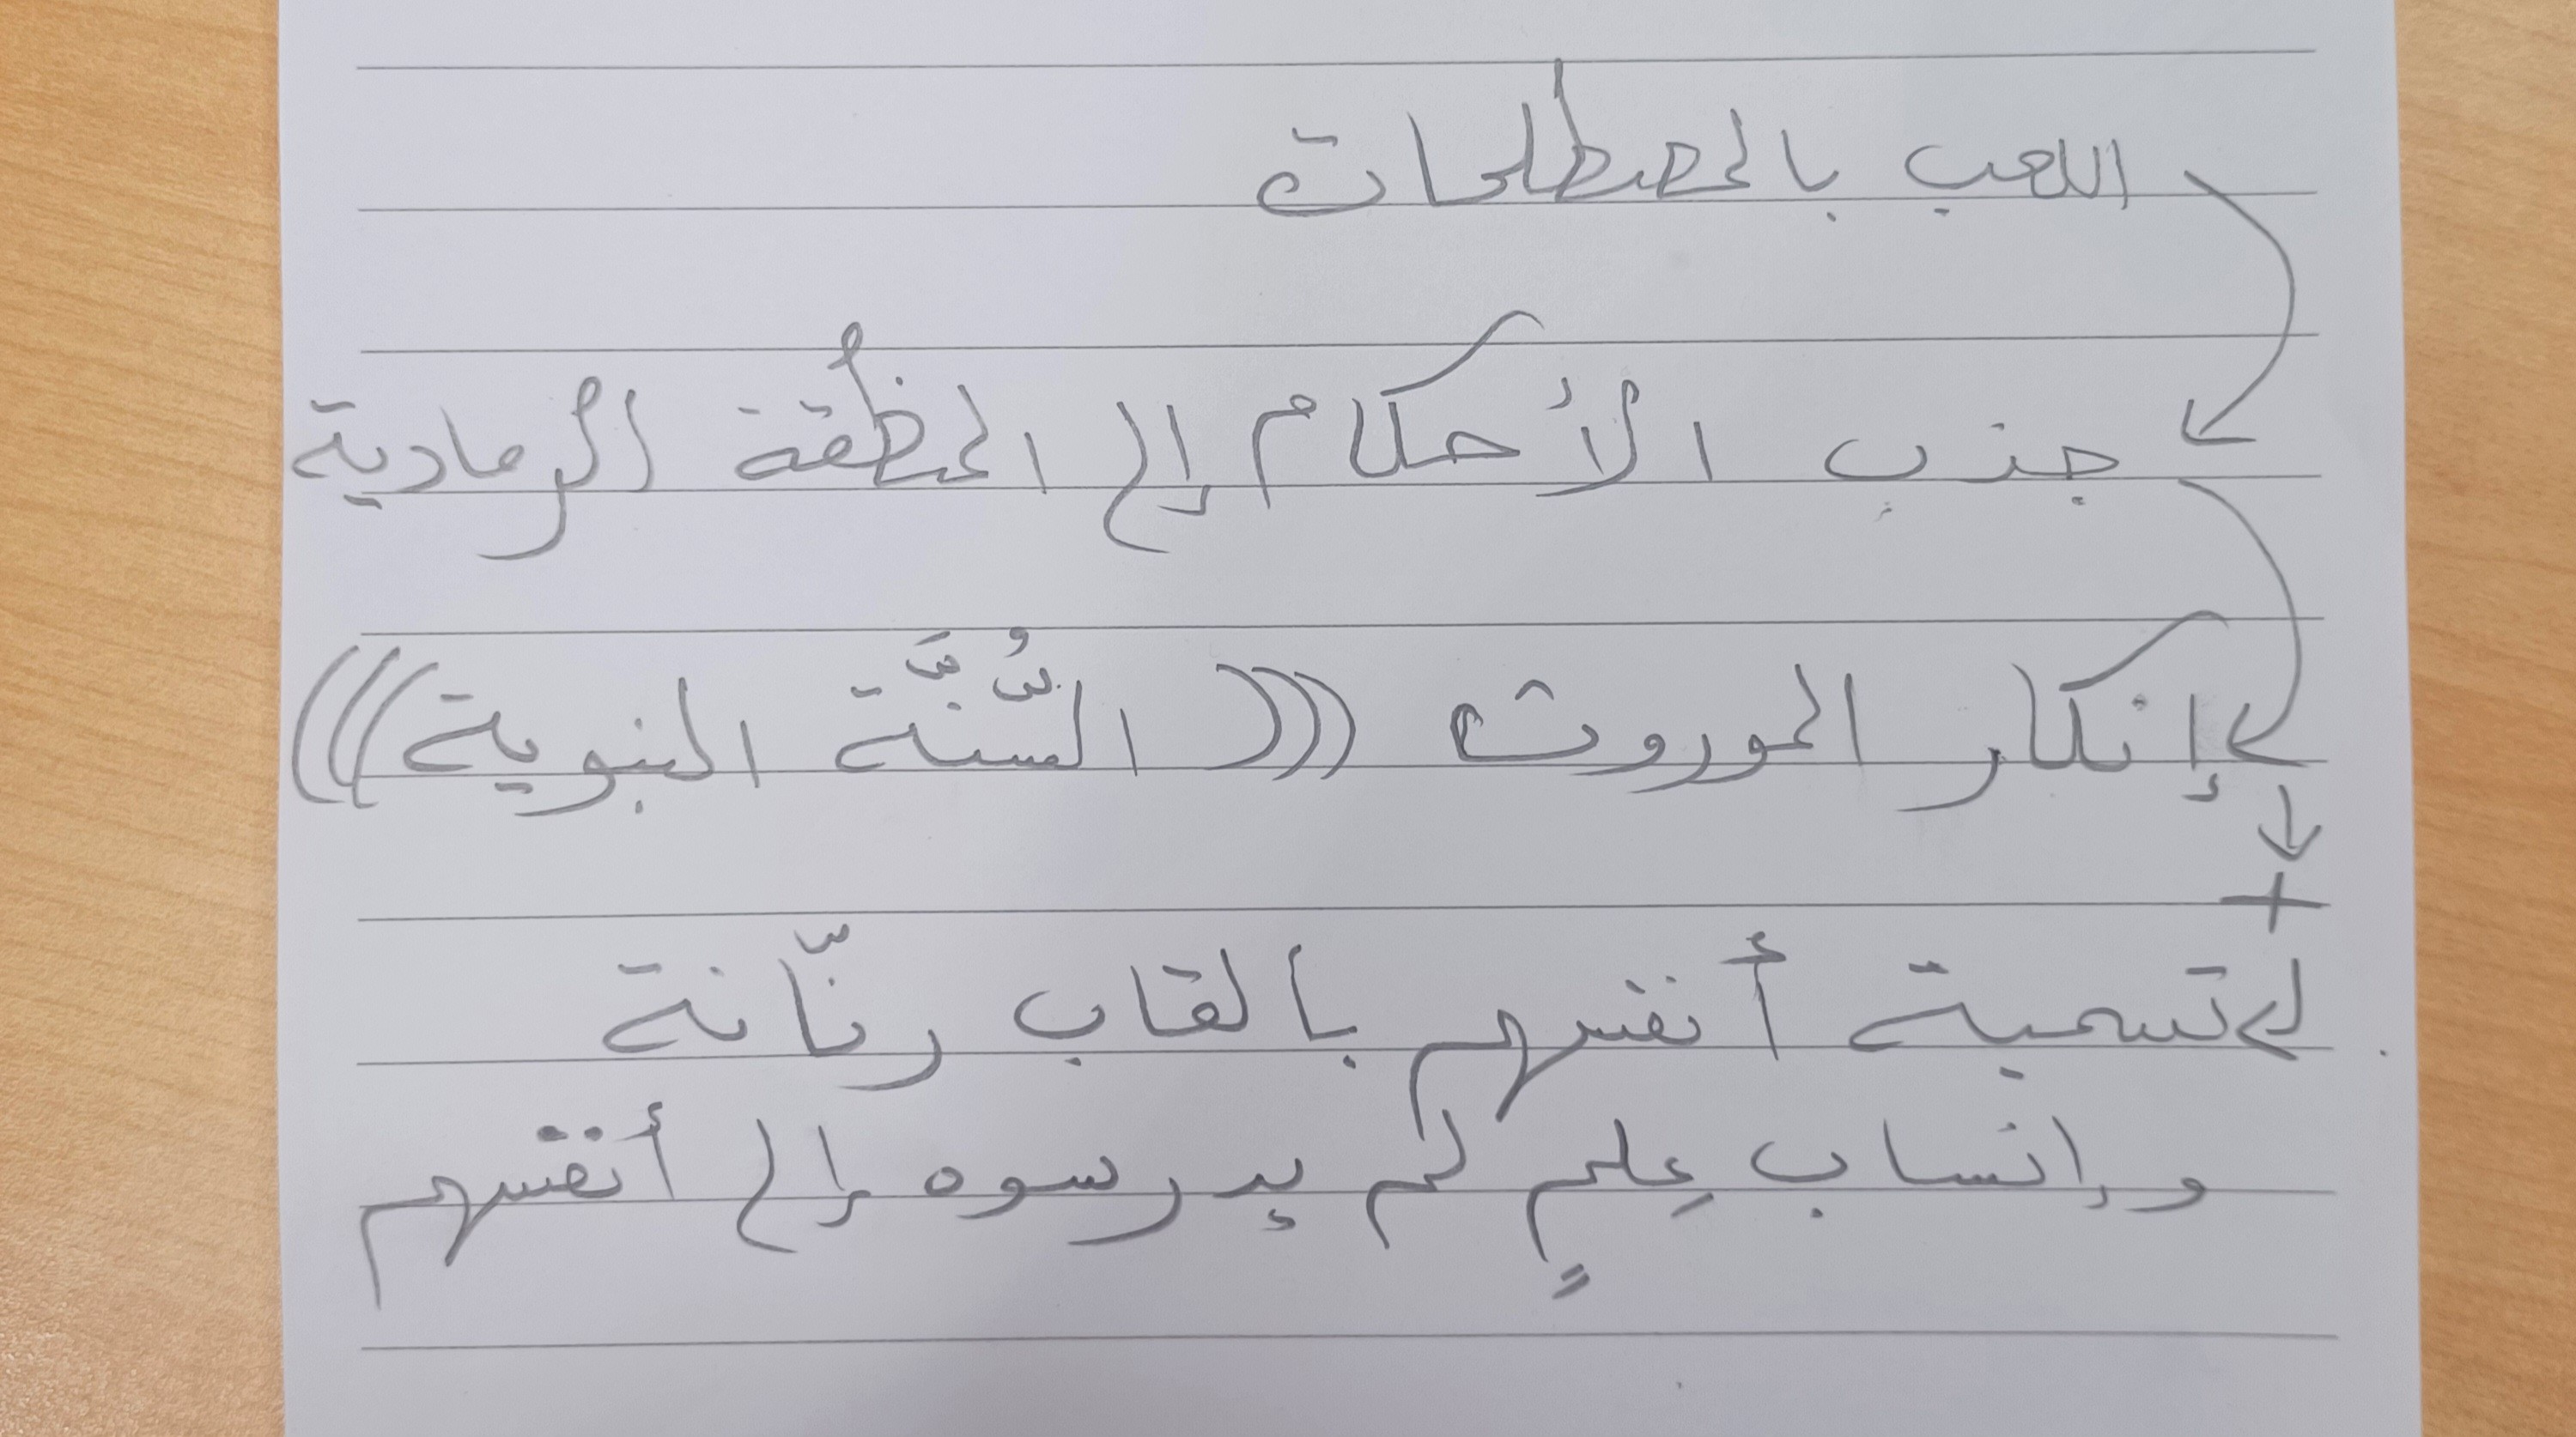 اللعب بالمصطلحات
جذب الأحكام إلى المنطقة الرمادية
إنكار الموروث (((السُّنَّة النبوية)))
+
تسمية أنفسهم بألقاب رنّانة
وإنساب عِلمٍ لم يدرسوه إلى أنفسهم